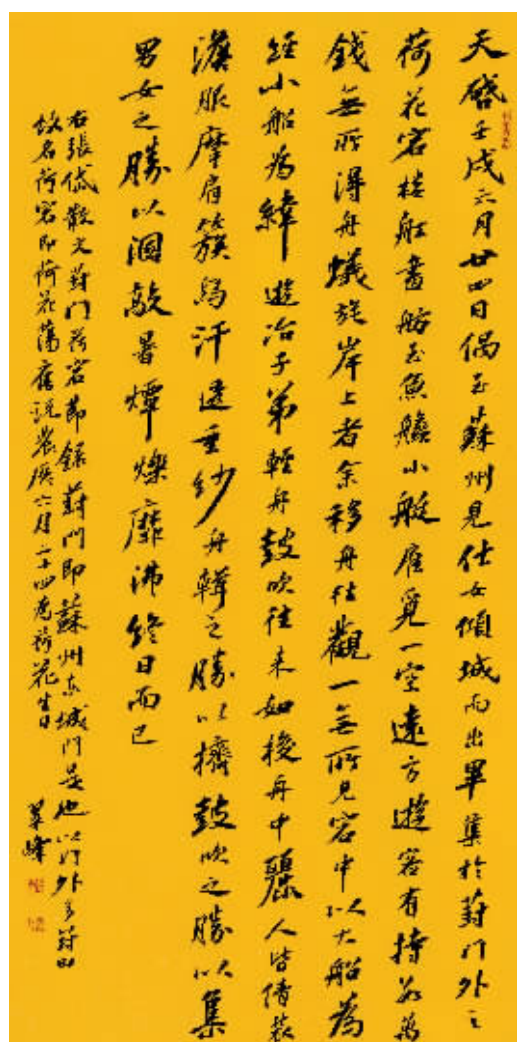 天啓壬戌六月廿四日偶至蘇州見仕女傾城而出畢集於葑门外之
荷花宕楼船畫舫至魚艖小艇雇覓一空遠方遊客有持数萬
錢無所得舟蟻旋岸上者余移舟往觀一無所見宕中以大船為
經小船為緯遊冶子弟輕舟鼓吹往来如梭舟中麗人皆倩装
澹服摩肩簇舄汗透重纱舟楫之勝以擠鼓吹之勝以集
男女之勝以溷敲暑燂爍靡沸终日而已
右張岱散文葑门荷宕節録葑門即蘇州东城門是也以门外多葑田
故名荷宕即荷花蕩舊説農历六月二十四为荷花生日